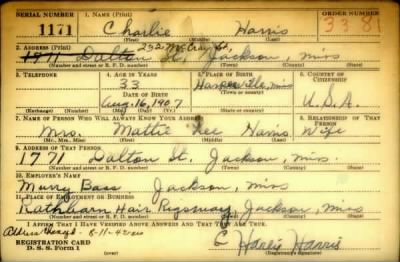 SERIAL NUMBER 1. NAME (Print) ORDER NUMBER
1171 Charlie Harris 3381
(First) (Middle) (Last)
2. ADDRESS (Print) 232 McCray St,
1771 Dalton St. Jackson, Miss
(Number and street or R. F. D. number) (Town) (County) (State)
3. TELEPHONE 4. AGE IN YEARS 5. PLACE OF BIRTH 6. COUNTRY OF CITIZENSHIP
33
DATE OF BIRTH
Aug. 16, 1907 Miss U.S.A.
(Exchange) (Number) (Mo.) (Day) (Yr.) (State or country)
7. NAME OF PERSON WHO WILL ALWAYS KNOW YOUR ADDRESS 8. RELATIONSHIP OF THAT PERSON
Mrs. Mattie Lee Harris Wife
(Mr., Mrs., Miss) (First) (Middle) (Last)
9. ADDRESS OF THAT PERSON
1771 Dalton St, Jackson, Miss.
(Number and street or R. F. D. number) (Town) (County) (State)
10. EMPLOYER'S NAME
Murry Bass Jackson, Miss
11. PLACE OF EMPLOYMENT OR BUSINESS
Jackson, Miss
(Number and street or R. F. D. number) (Town) (County) (State)
I AFFIRM THAT I HAVE VERIFIED ABOVE ANSWERS AND THAT THEY ARE TRUE.
Address 8-11-42
REGISTRATION CARD
D. S. S. Form 1 (over) (Registrant's signature)
Charlie Harris